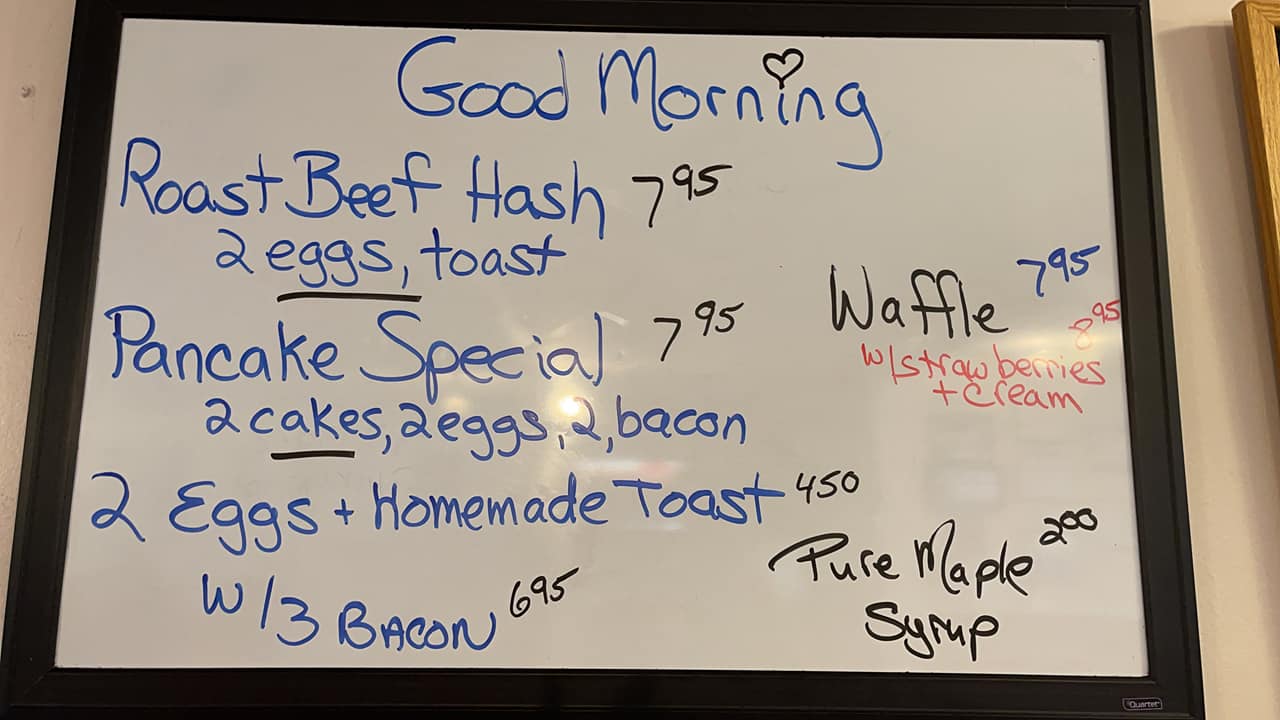 Good Morning
Roast Beef Hash 7 95
2 eggs, toast
Pancake Special 7 95
2 cakes, 2 eggs, 2, bacon
2 Eggs + Homemade Toast 450
W/3 BACON 695
Waffle 7 95
8 95
w/strawberries
+ cream
Pure Maple 2 00
Syrup
Quartet